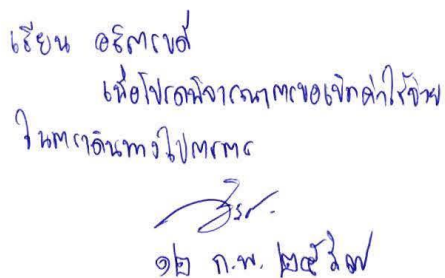 เรียน อธิการบดี
เพื่อโปรดพิจารณาการขอเบิกค่าใช้จ่าย
ในการเดินทางไปราชการ
๑๒ ก.พ. ๒๕๖๗